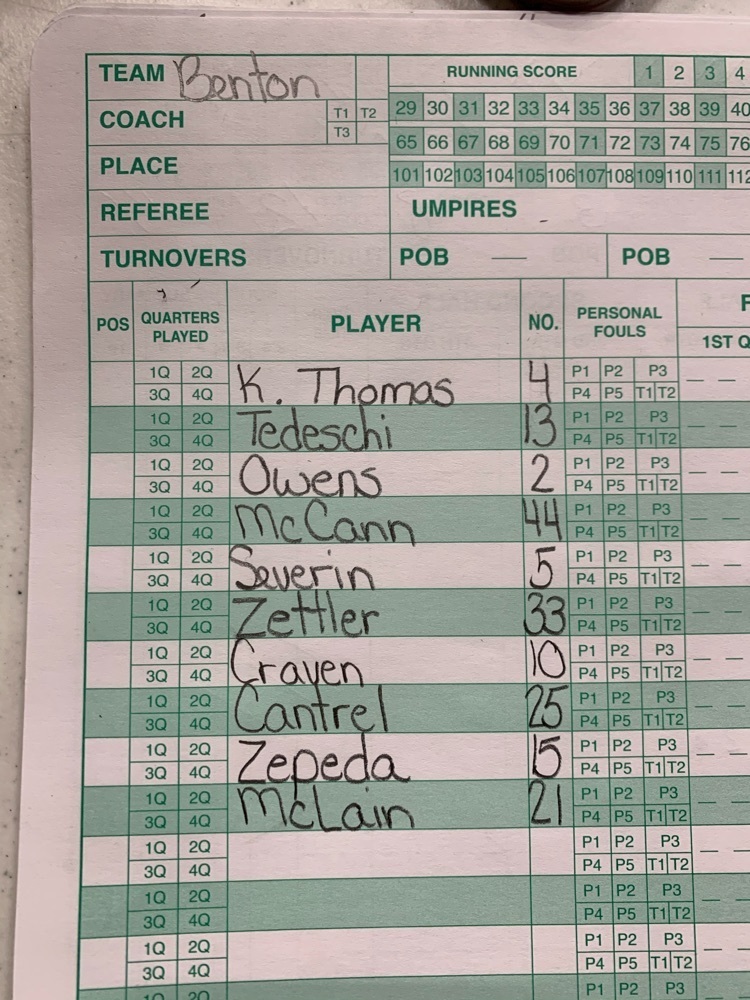 TEAM Benton RUNNING SCORE 1 2 3 4
COACH T1 T2 29 30 31 32 33 34 35 36 37 38 39 40
T3 65 66 67 68 69 70 71 72 73 74 75 76
PLACE 101 102 103 104 105 106 107 108 109 110 111 112
REFEREE UMPIRES
TURNOVERS POB — POB —
POS QUARTERS PLAYED PLAYER NO. PERSONAL FOULS F
1ST Q
1Q 2Q K. Thomas 4 P1 P2 P3
3Q 4Q P4 P5 T1 T2
1Q 2Q Tedeschi 13 P1 P2 P3
3Q 4Q P4 P5 T1 T2
1Q 2Q Owens 2 P1 P2 P3
3Q 4Q P4 P5 T1 T2
1Q 2Q McCann 44 P1 P2 P3
3Q 4Q P4 P5 T1 T2
1Q 2Q Severin 5 P1 P2 P3
3Q 4Q P4 P5 T1 T2
1Q 2Q Zettler 33 P1 P2 P3
3Q 4Q P4 P5 T1 T2
1Q 2Q Craven 10 P1 P2 P3
3Q 4Q P4 P5 T1 T2
1Q 2Q Cantrel 25 P1 P2 P3
3Q 4Q P4 P5 T1 T2
1Q 2Q Zepeda 15 P1 P2 P3
3Q 4Q P4 P5 T1 T2
1Q 2Q McLain 21 P1 P2 P3
3Q 4Q P4 P5 T1 T2
1Q 2Q P1 P2 P3
3Q 4Q P4 P5 T1 T2
1Q 2Q P1 P2 P3
3Q 4Q P4 P5 T1 T2
1Q 2Q P1 P2 P3
3Q 4Q P4 P5 T1 T2
1Q 2Q P1 P2 P3